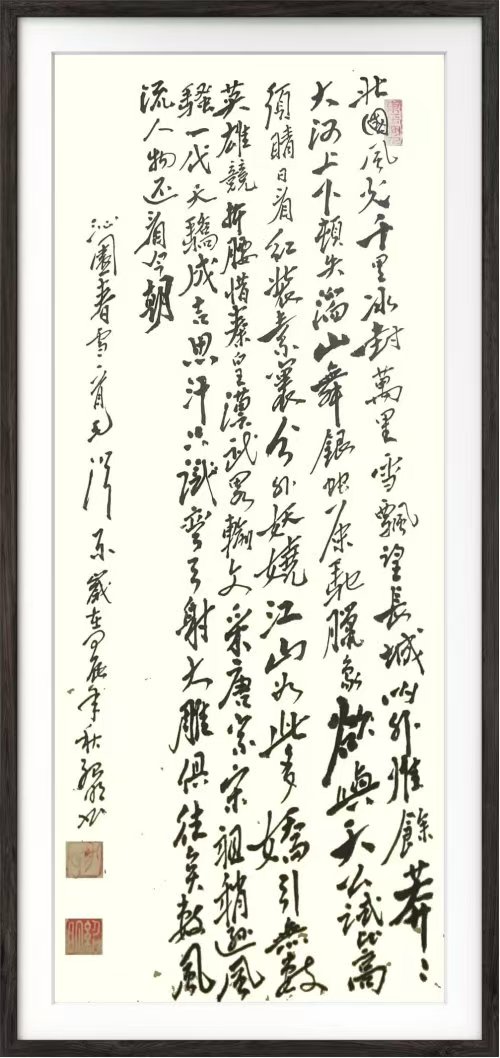 北國風光千里冰封萬里雪飄望長城内外惟餘莽〻
大河上下頓失滔山舞銀蛇原馳臘象欲與天公試比高
須晴日看紅裝素裹分外妖嬈江山如此多嬌引無數
英雄競折腰惜秦皇漢武略輸文采唐宗宋祖稍遜風
騷一代天驕成吉思汗只識彎弓射大雕俱往矣數風
流人物还看今朝
沁園春雪一首毛澤东歲在甲辰年秋紹明书